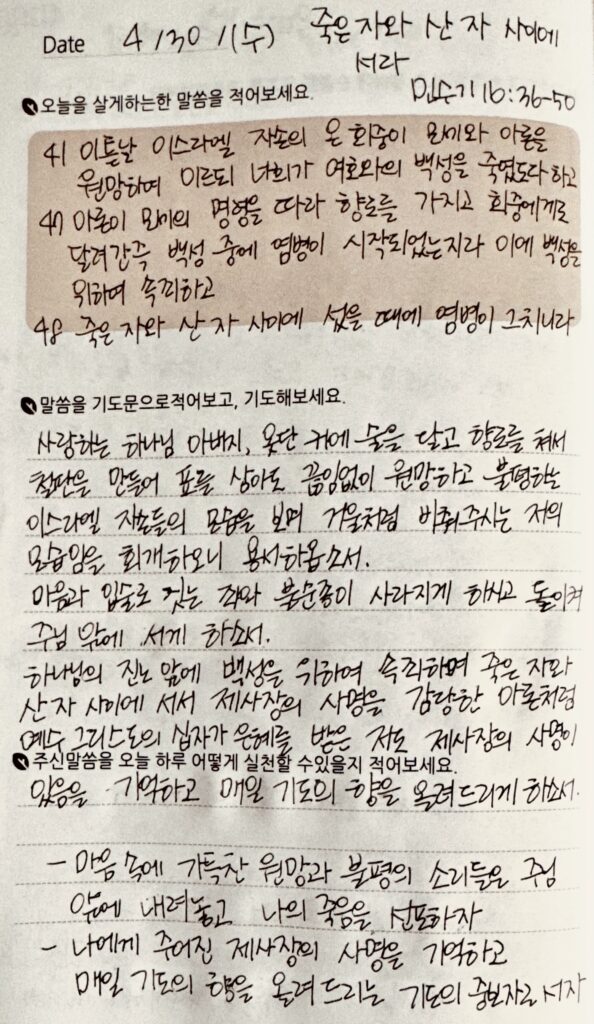 Date 4/30/(수) 죽은 자와 산 자 사이에
서라
민수기 16:36-50
오늘을 살게하는한 말씀을 적어보세요.
41 이튿날 이스라엘 자손의 온 회중이 모세와 아론을
원망하여 이르되 너희가 여호와의 백성을 죽였도다 하고
47 아론이 모세의 명령을 따라 향로를 가지고 회중에게로
달려간즉 백성 중에 염병이 시작되었는지라 이에 백성을
위하여 속죄하고
48 죽은 자와 산 자 사이에 섰을 때에 염병이 그치니라
말씀을 기도문으로적어보고, 기도해보세요.
사랑하는 하나님 아버지, 옷단 귀에 술을 달고 향로를 쳐서
철판을 만들어 표를 삼아도 끊임없이 원망하고 불평하는
이스라엘 자손들의 모습을 보며 거울처럼 비춰주시는 저의
모습임을 회개하오니 용서하옵소서.
마음과 입술로 짓는 죄와 불순종이 사라지게 하시고 돌이켜
주님 앞에 서게 하소서.
하나님의 진노 앞에 백성을 위하여 속죄하며 죽은 자와
산 자 사이에 서서 제사장의 사명을 감당한 아론처럼
예수 그리스도의 십자가 은혜를 받은 저도 제사장의 사명이
주신말씀을 오늘 하루 어떻게 실천할 수있을지 적어보세요.
있음을 기억하고 매일 기도의 향을 올려드리게 하소서.
- 마음 속에 가득찬 원망과 불평의 소리들을 주님
앞에 내려놓고 나의 죽음을 선포하자
- 나에게 주어진 제사장의 사명을 기억하고
매일 기도의 향을 올려 드리는 기도의 중보자로 서자